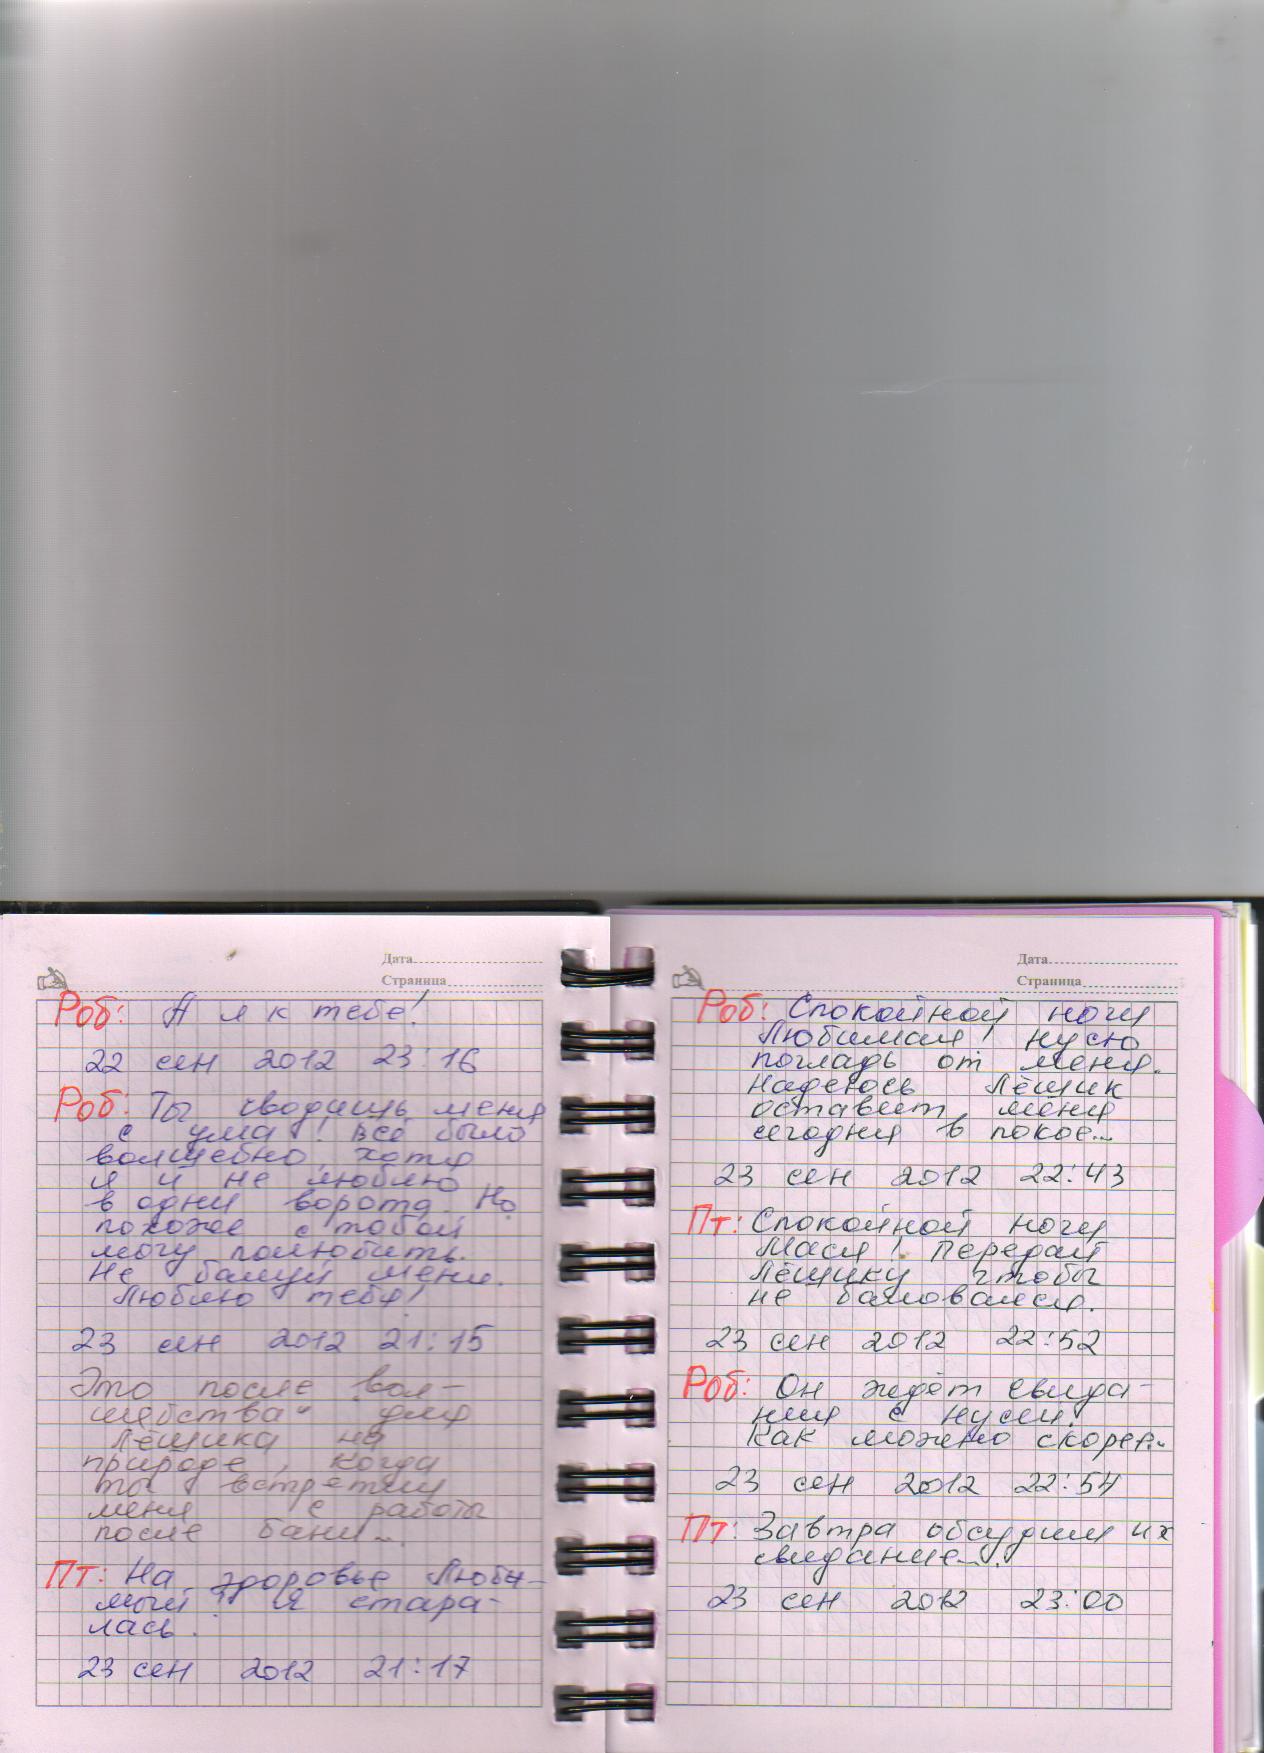 Дата
Страница
Роб: А я к тебе!
22 сен 2012 23:16
Роб: Ты сводишь меня
с ума! Всё было
волшебно, хотя
я и не люблю
в одни ворота. Но
похоже с тобой
могу полюбить.
Не балуй меня.
Люблю тебя!
23 сен 2012 21:15
Это после вол-
шебства" для
Лёшика на
природе, когда
ты встретил
меня с работы
после бани...
Пт: На здоровье Люби-
мый! Я стара-
лась!
23 сен 2012 21:17
Дата
Страница
Роб: Спокойной ночи
Любимая! Нусю
погладь от меня.
Надеюсь Лёшик
оставит меня
сегодня в покое...
23 сен 2012 22:43
Пт: Спокойной ночи
Мася! Передай
Лёшику чтобы
не баловался.
23 сен 2012 22:52
Роб: Он ждёт свида-
ния с Нусей.
Как можно скорее..
23 сен 2012 22:54
Пт: Завтра обсудим их
свидание...
23 сен 2012 23:00